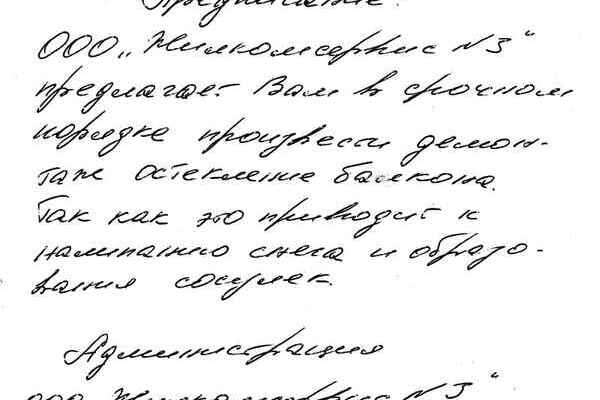 Предписание.
ООО „Жилкомсервис N3“
предлагает Вам в срочном
порядке произвести демон-
таж остекление балкона.
Так как это приводит к
налипанию снега и образо-
вания сосулек.
Администрация
ООО „Жилкомсервис N3“